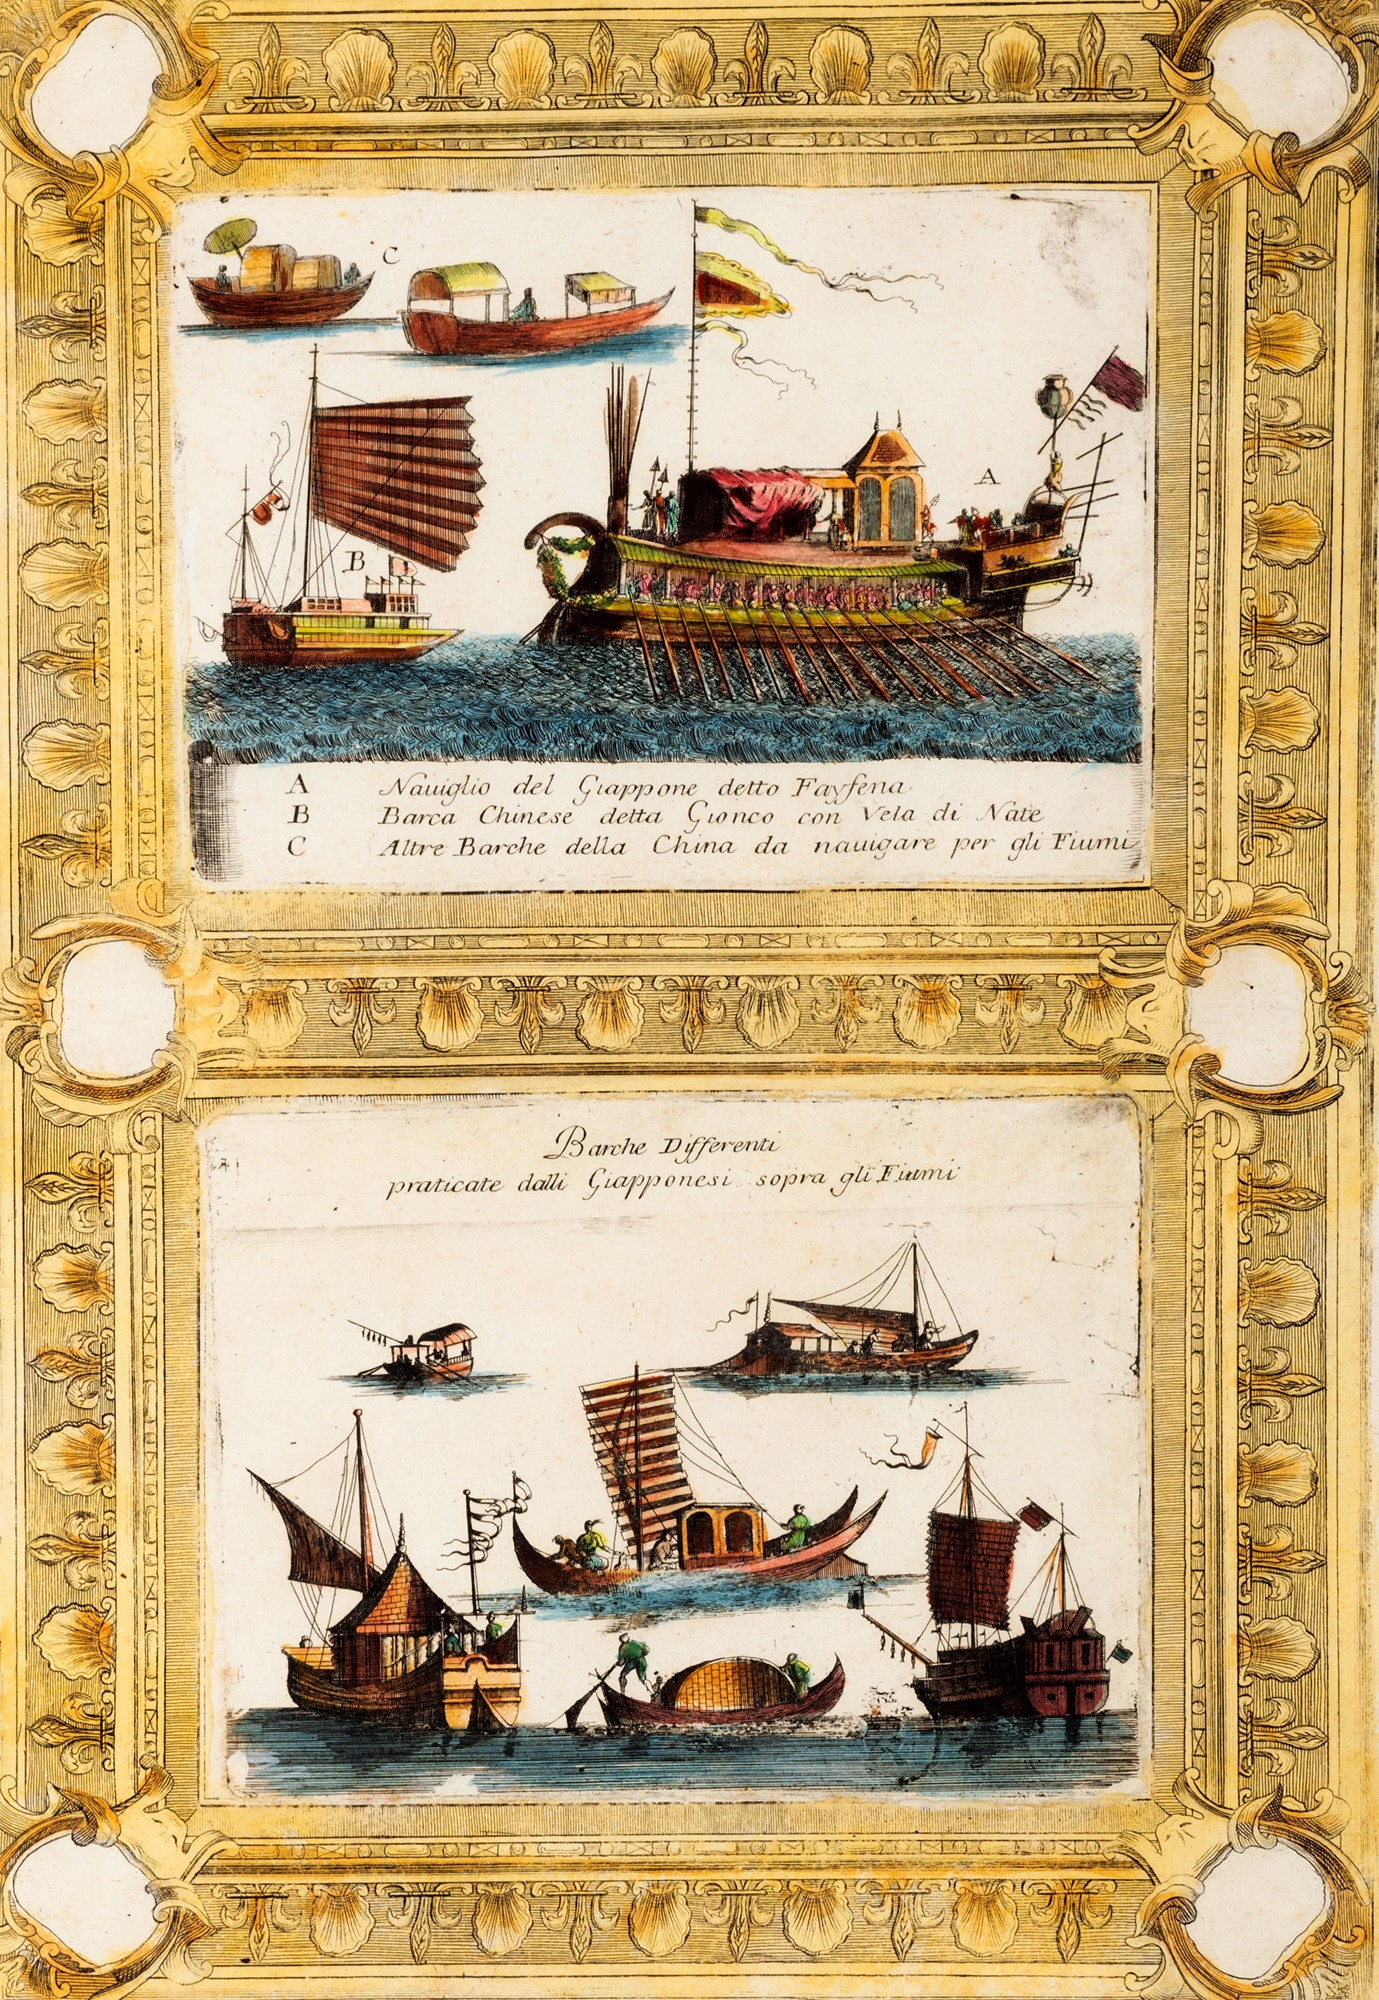 C
B
A
A Nauiglio del Giappone detto Fayfena
B Barca Chinese detta Gionco con Vela di Nate
C Altre Barche della China da nauigare per gli Fiumi
Barche Differenti
praticate dalli Giapponesi sopra gli Fiumi